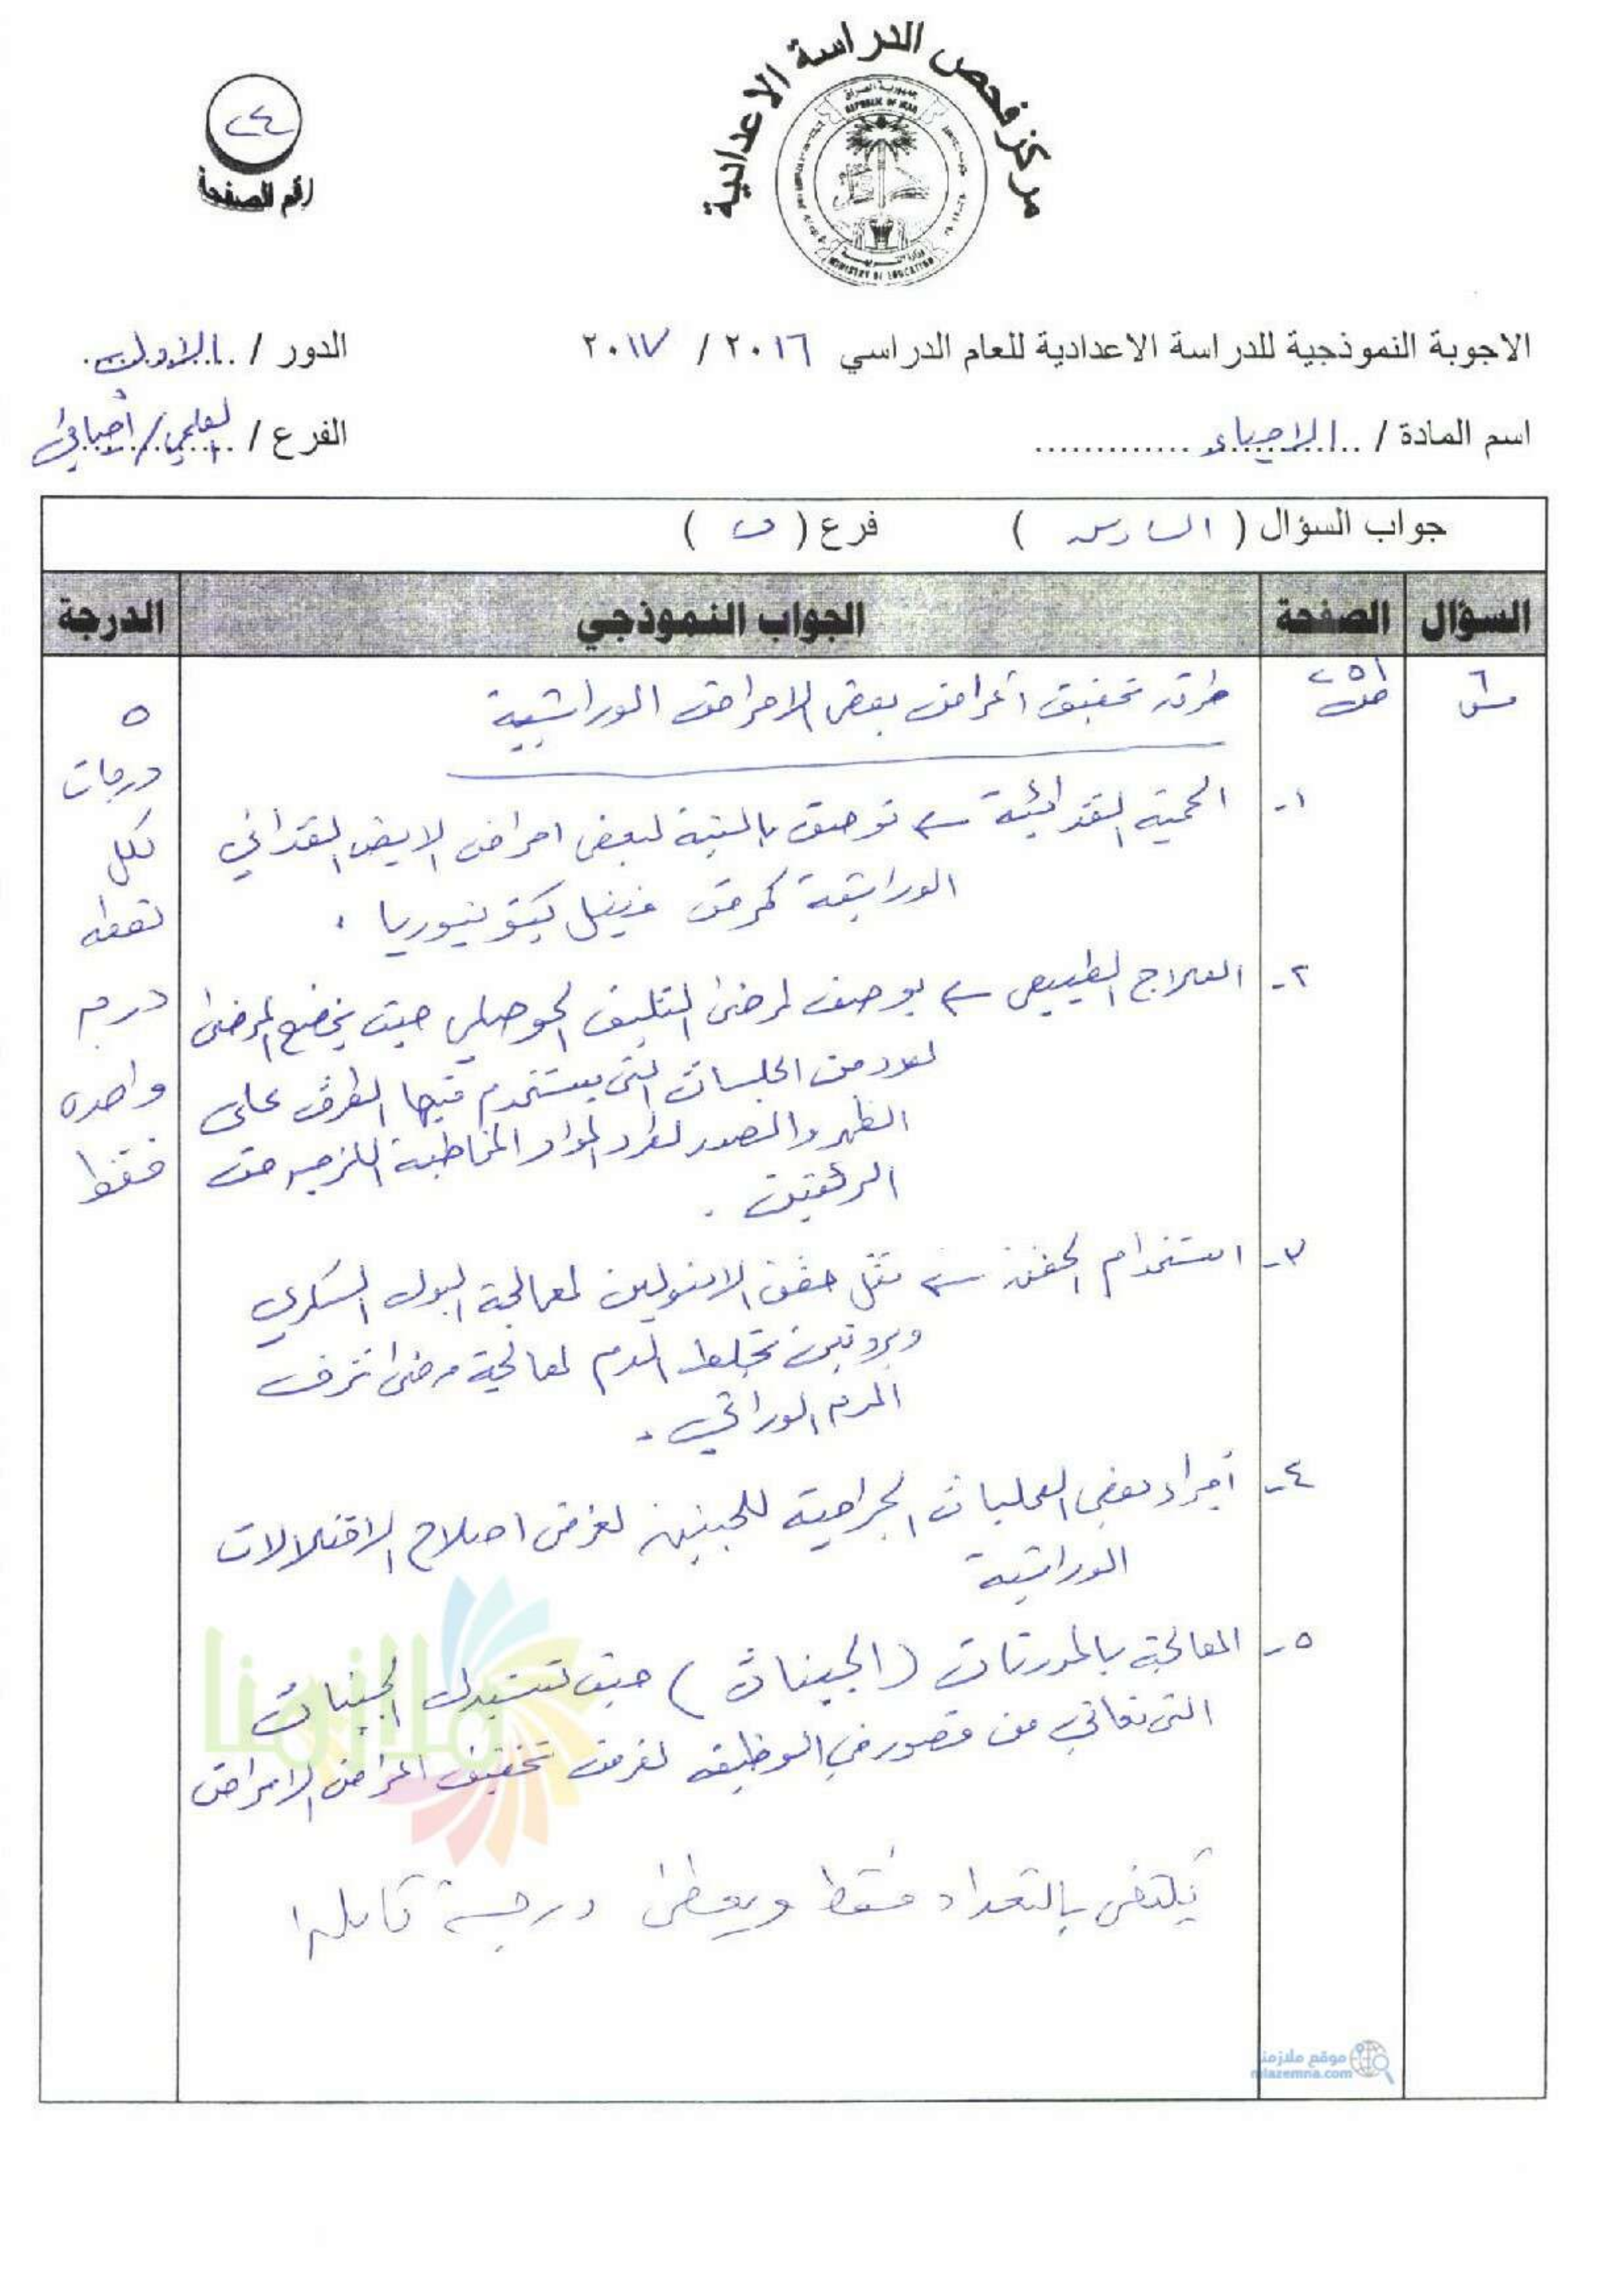 مركز فحص الدراسة الاعدادية
جمهورية العراق
REPUBLIC OF IRAQ
MINISTRY OF EDUCATION
٢٤
رقم الصفحة
الاجوبة النموذجية للدراسة الاعدادية للعام الدراسي ٢٠١٦ / ٢٠١٧
الدور / الاول
اسم المادة / الاحياء
الفرع / العلمي / أحيائي
جواب السؤال ( السادس ) فرع ( ب )
السؤال الصفحة الجواب النموذجي الدرجة
س٦
ص٢٥١
طرق تخفيف أعراض بعض الامراض الوراثية
١- الحمية الغذائية ← توصف بالنسبة لبعض امراض الايض الغذائي
الوراثية كمرض فينل كيتونيوريا .
٢- العلاج الطبيعي ← يوصف لمرضى التليف الحوصلي حيث يخضع المرضى
لعدد من الجلسات التي يستخدم فيها الطرق على
الظهر والصدر لطرد المواد المخاطية اللزجة من
الرئتين .
٣- استخدام الحقن ← مثل حقن الانسولين لمعالجة البول السكري
وبروتين تجلط الدم لمعالجة مرضى نزف
الدم الوراثي .
٤- أجراء بعض العمليات الجراحية للجنين لغرض اصلاح الاختلالات
الوراثية
٥- المعالجة بالمورثات (الجينات) حيث تستبدل الجينات
التي تعاني من قصور في الوظيفة لغرض تخفيف اعراض الامراض
يكتفى بالتعداد فقط ويعطى درجة كاملة
٥
درجات
لكل
نقطة
درجة
واحدة
فقط
ملازمنا
موقع ملازمنا
mlazemna.com